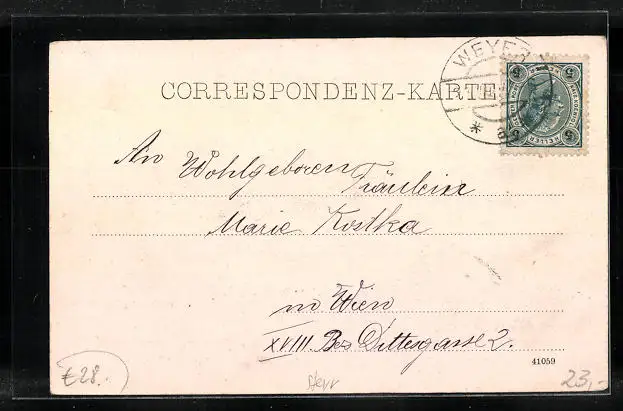 WEYER
CORRESPONDENZ-KARTE
5 5
HELLER
5 5
An Wohlgeboren Fräulein
Marie Kostka
in Wien
XVIII. Bez Dittesgasse 2.
41059
£28.
23,-